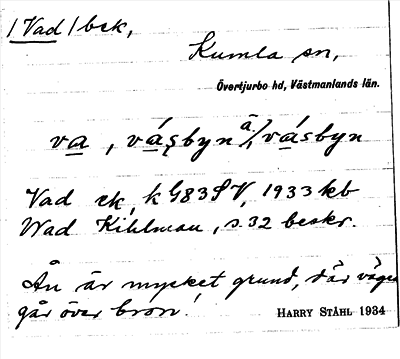 /Vad/bek,
Kumla sn,
Övertjurbo hd, Västmanlands län.
va, vásbyn ä/vásbyn
Vad ek, k G83SV, 1933 kb
Wad Kihlman, s. 32 beskr.
Ån är mycket grund, där vägen
går över bron!
HARRY STÅHL 1934